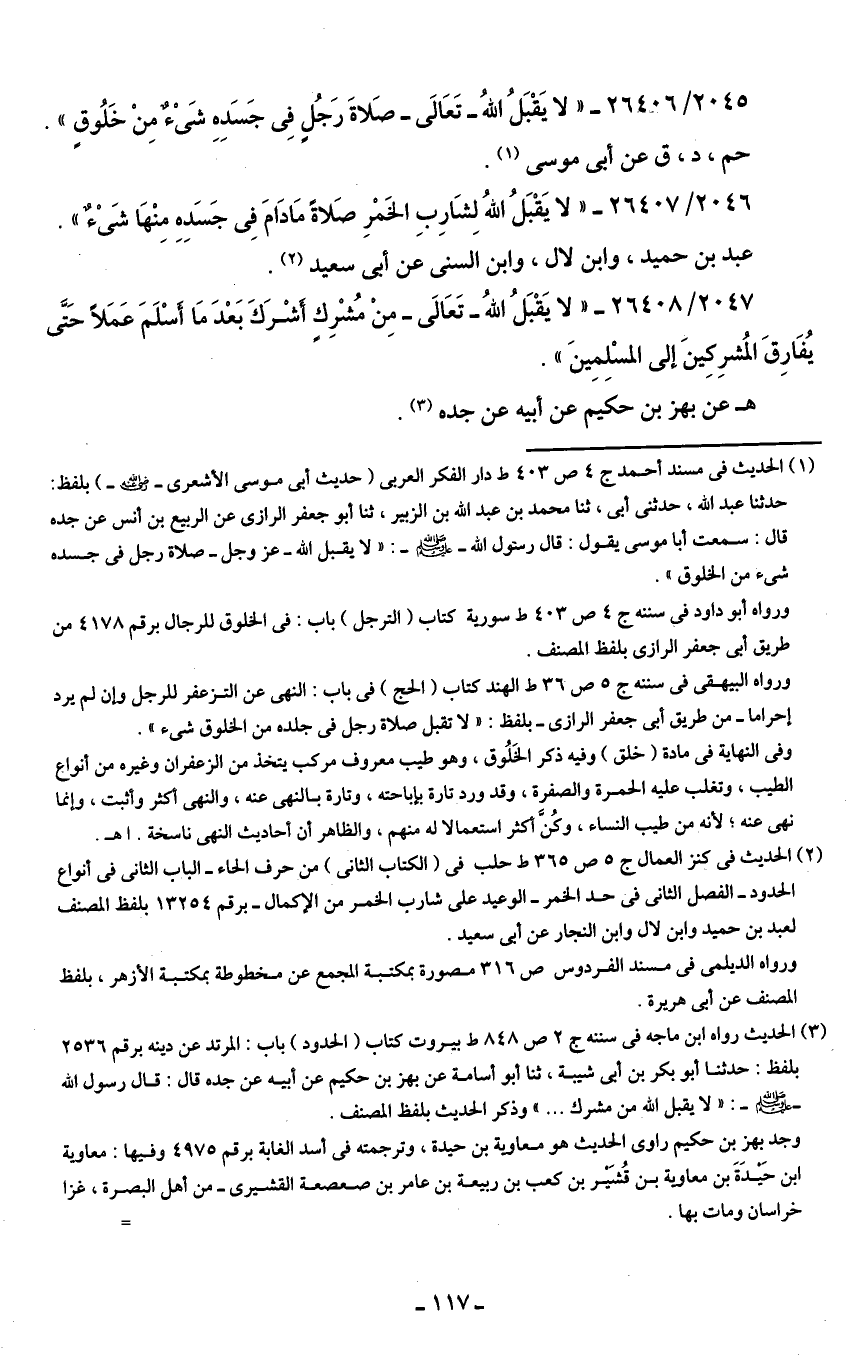 ٢٠٤٥/ ٢٦٤٠٦ ـ « لا يَقْبَلُ اللهُ ـ تَعَالَى ـ صَلاةَ رَجُلٍ فِى جَسَدِهِ شَىْءٌ مِنْ خَلُوقٍ » .
حم ، د ، ق عن أبى موسى (١) .
٢٠٤٦/ ٢٦٤٠٧ ـ « لا يَقْبَلُ اللهُ لِشَارِبِ الخَمْرِ صَلاةً مَادَامَ فِى جَسَدِهِ مِنْهَا شَىْءٌ » .
عبد بن حميد ، وابن لال ، وابن السنى عن أبى سعيد (٢) .
٢٠٤٧/ ٢٦٤٠٨ ـ « لا يَقْبَلُ اللهُ ـ تَعَالَى ـ مِنْ مُشْرِكٍ أَشْرَكَ بَعْدَ مَا أَسْلَمَ عَمَلاً حَتَّى
يُفَارِقَ المُشرِكِينَ إلى المسْلِمِينَ » .
هـ عن بهز بن حكيم عن أبيه عن جده (٣) .
(١) الحديث فى مسند أحمد ج ٤ ص ٤٠٣ ط دار الفكر العربى ( حديث أبى موسى الأشعرى ـ رضي الله عنه ـ ) بلفظ :
حدثنا عبد الله ، حدثنى أبى ، ثنا محمد بن عبد الله بن الزبير ، ثنا أبو جعفر الرازى عن الربيع بن أنس عن جده
قال : سمعت أبا موسى يقول : قال رسول الله ـ ﷺ ـ : « لا يقبل الله ـ عز وجل ـ صلاة رجل فى جسده
شىء من الخلوق » .
ورواه أبو داود فى سننه ج ٤ ص ٤٠٣ ط سورية كتاب ( الترجل ) باب : فى الخلوق للرجال برقم ٤١٧٨ من
طريق أبى جعفر الرازى بلفظ المصنف .
ورواه البيهقى فى سننه ج ٥ ص ٣٦ ط الهند كتاب ( الحج ) فى باب : النهى عن التزعفر للرجل وإن لم يرد
إحراما ـ من طريق أبى جعفر الرازى ـ بلفظ : « لا تقبل صلاة رجل فى جلده من الخلوق شىء » .
وفى النهاية فى مادة ( خلق ) وفيه ذكر الخَلُوق ، وهو طيب معروف مركب يتخذ من الزعفران وغيره من أنواع
الطيب ، وتغلب عليه الحمرة والصفرة ، وقد ورد تارة بإباحته ، وتارة بالنهى عنه ، والنهى أكثر وأثبت ، وإنما
نهى عنه ؛ لأنه من طيب النساء ، وكُنَّ أكثر استعمالا له منهم ، والظاهر أن أحاديث النهى ناسخة . اهـ .
(٢) الحديث فى كنز العمال ج ٥ ص ٣٦٥ ط حلب فى ( الكتاب الثانى ) من حرف الحاء ـ الباب الثانى فى أنواع
الحدود ـ الفصل الثانى فى حد الخمر ـ الوعيد على شارب الخمر من الإكمال ـ برقم ١٣٢٥٤ بلفظ المصنف
لعبد بن حميد وابن لال وابن النجار عن أبى سعيد .
ورواه الديلمى فى مسند الفردوس ص ٣١٦ مصورة بمكتبة المجمع عن مخطوطة بمكتبة الأزهر ، بلفظ
المصنف عن أبى هريرة .
(٣) الحديث رواه ابن ماجه فى سننه ج ٢ ص ٨٤٨ ط بيروت كتاب ( الحدود ) باب : المرتد عن دينه برقم ٢٥٣٦
بلفظ : حدثنا أبو بكر بن أبى شيبة ، ثنا أبو أسامة عن بهز بن حكيم عن أبيه عن جده قال : قال رسول الله
ـ ﷺ ـ : « لا يقبل الله من مشرك ... » وذكر الحديث بلفظ المصنف .
وجد بهز بن حكيم راوى الحديث هو معاوية بن حيدة ، وترجمته فى أسد الغابة برقم ٤٩٧٥ وفيها : معاوية
ابن حَيْدَةَ بن معاوية بن قُشَيْر بن كعب بن ربيعة بن عامر بن صعصعة القشيرى ـ من أهل البصرة ، غزا
خراسان ومات بها .
=
ـ ١١٧ ـ